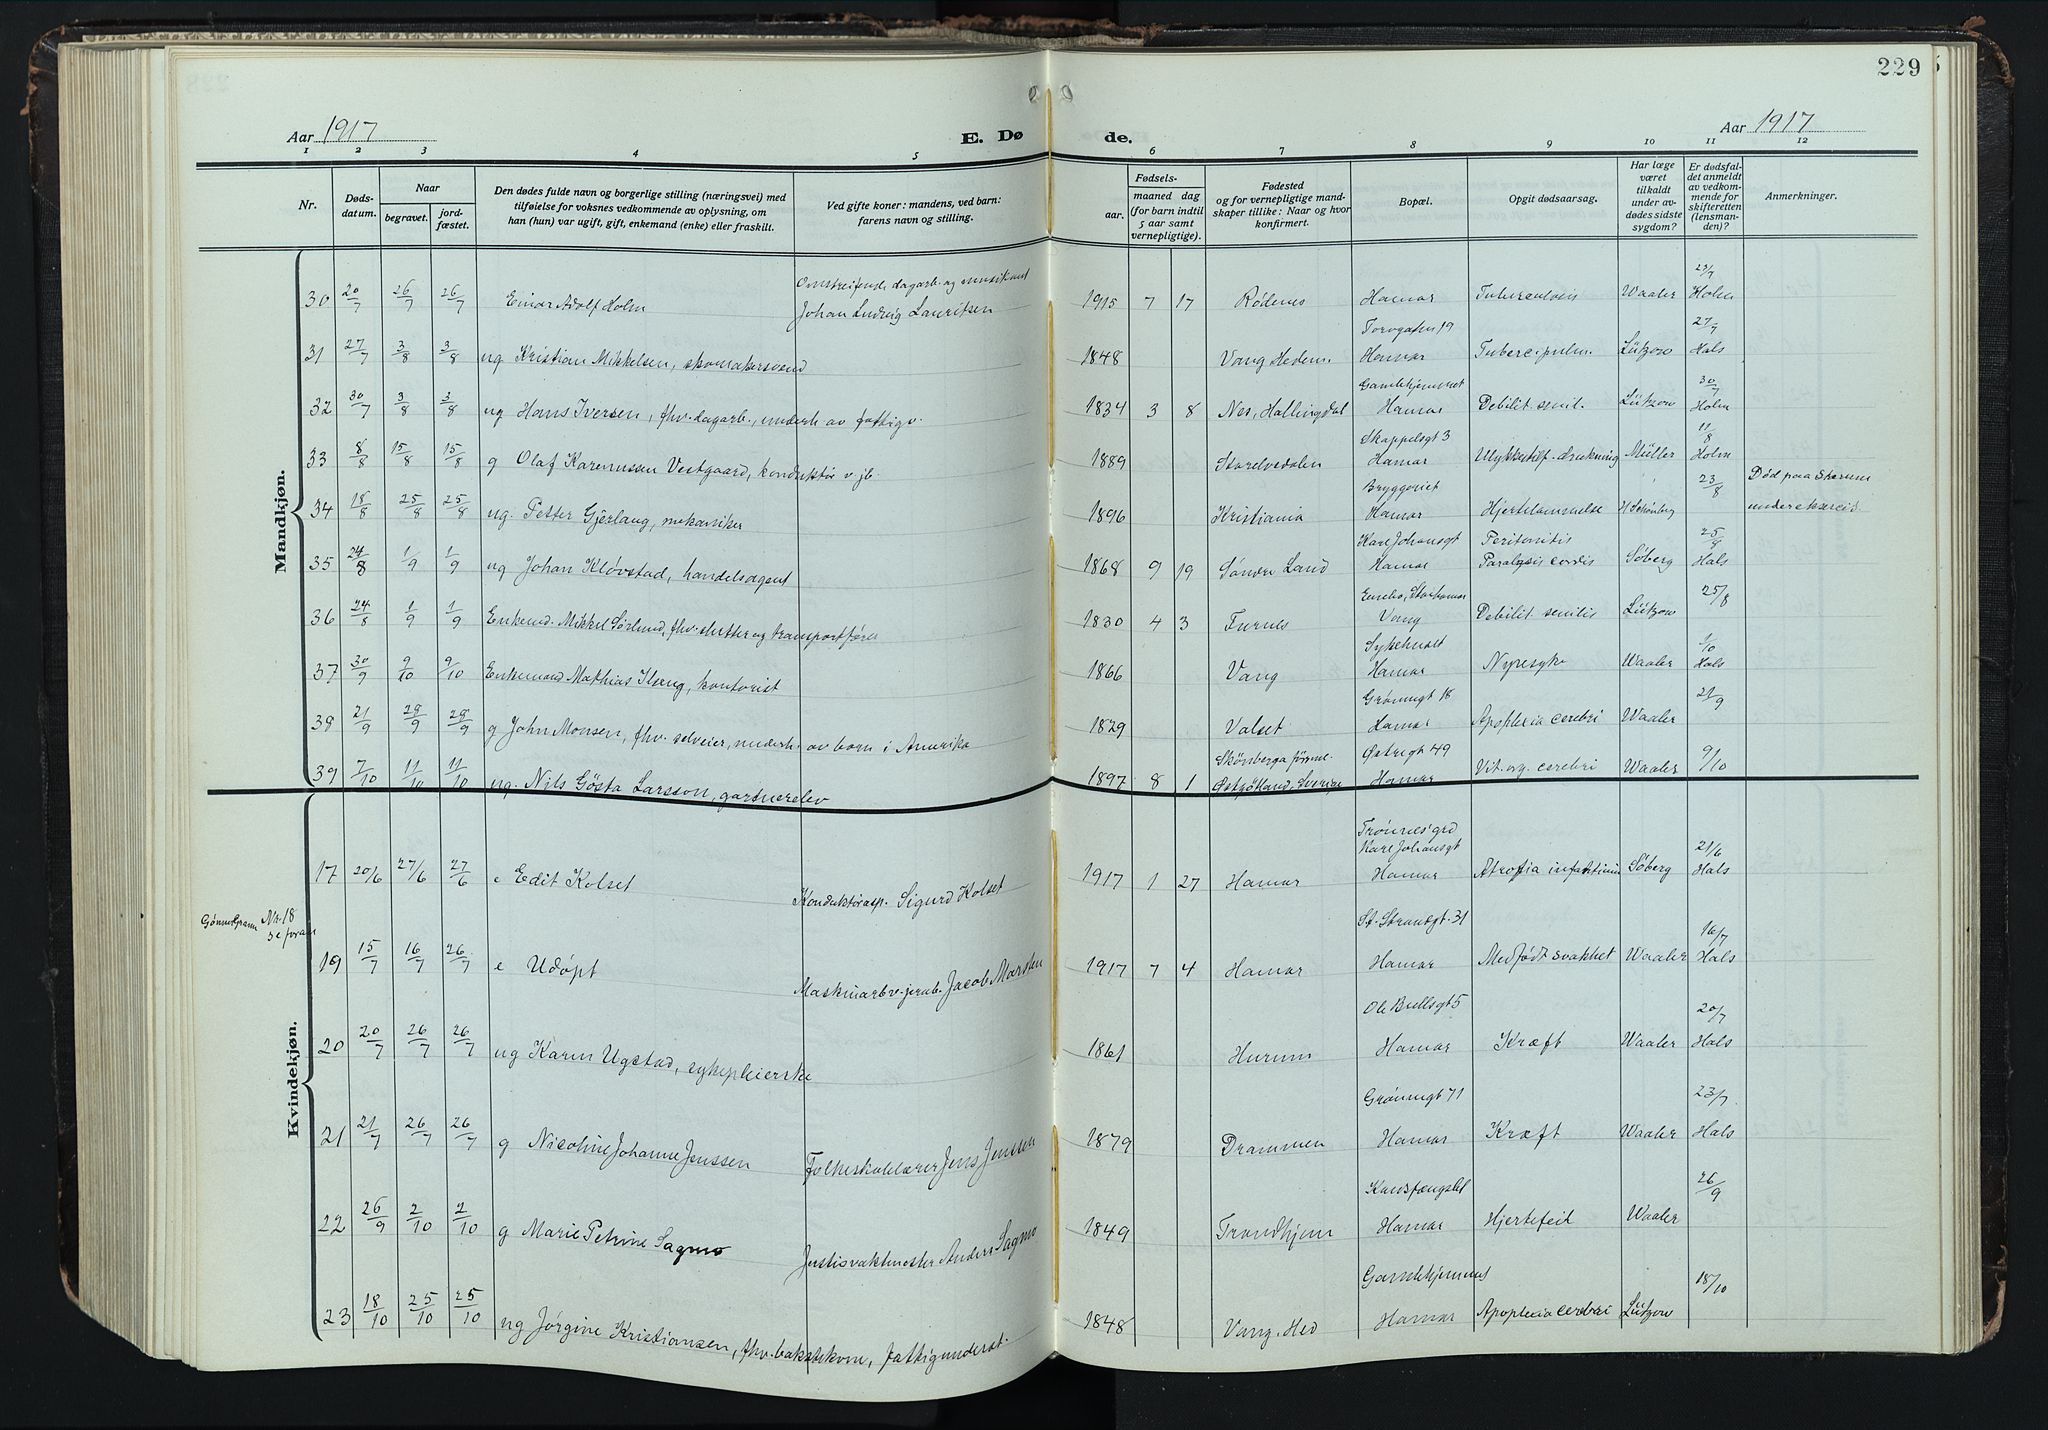 229
Aar 1917
E. Dø
de.
Aar 1917
1 2 3 4 5 6 7 8 9 10 11 12
Nr.
Døds-
datum.
Naar
begravet.
jord-
fæstet.
Den dødes fulde navn og borgerlige stilling (næringsvei) med
tilføielse for voksnes vedkommende av oplysning, om
han (hun) var ugift, gift, enkemand (enke) eller fraskilt.
Ved gifte koner: mandens, ved barn:
farens navn og stilling.
Fødsels-
aar.
maaned dag
(for barn indtil
5 aar samt
vernepligtige).
Fødested
og for vernepligtige mand-
skaper tillike: Naar og hvor
konfirmert.
Bopæl.
Opgit dødsaarsag.
Har læge
været
tilkaldt
under av-
dødes sidste
sygdom?
Er dødsfal-
det anmeldt
av vedkom-
mende for
skifteretten
(lensman-
den)?
Anmerkninger.
Mandkjøn.
Omstreifende dagarb. og musikant 23/7
30 20/7 26/7 26/7 Einar Adolf Holm Johan Ludvig Lauritsen 1915 7 17 Rødenes Hamar Tuberculosis Waaler Holm
Torvgaten 19 27/7
31 27/7 3/8 3/8 ug Kristian Mikkelsen, skomakersvend 1848 Vang Hedem. Hamar Tuberc. pulm. Lützow Hals
Gamlehjemmet 30/7
32 30/7 3/8 3/8 ug Hans Iversen, fhv. dagarb., underh. av fattigv. 1834 3 8 Nes, Hallingdal Hamar Debilit. senil. Lützow Holm
Skappelsgt 3 11/8
33 8/8 15/8 15/8 g Olaf Karenussen Vestgaard, konduktør v. jb. 1889 Storelvedalen Hamar Ulykkestilf. drukning Müller Holm
Bryggeriet 23/8 Død paa Starum
34 18/8 25/8 25/8 ug. Petter Gjerlaug, mekaniker 1896 Kristiania Hamar Hjertelammelse H Schønberg under eksercis.
Karl Johansgt Peritonitis 25/8
35 24/8 1/9 1/9 ug Johan Kløvstad, handelsagent 1868 9 19 Søndre Land Hamar Paralysis cordis Søberg Hals
Enebo, Storhamar 25/8
36 24/8 1/9 1/9 Enkemd. Mikkel Sørlund, fhv. slutter og transportfører 1830 4 3 Furnes Vang Debilit senilis Lützow
Sykehuset 1/10
37 30/9 9/10 9/10 Enkemand Mathias Ilseng, kontorist 1866 Vang Hamar Nyresyke Waaler Hals
Grønnegt 18 21/9
38 21/9 28/9 28/9 g John Monsen, fhv. selveier, underh. av barn i Amerika 1829 Valset Hamar Apoplexia cerebri Waaler
Skönberga försml. Østregt 49
39 7/10 11/10 11/10 ug. Nils Gösta Larsson, gartnerelev 1897 8 1 Østgötland, Sverige Hamar Vit. org. cerebri Waaler 9/10
Kvindekjøn.
Trønnes' grd
Karl Johansgt 21/6
17 20/6 27/6 27/6 e Edit Kolset Konduktørasp. Sigurd Kolset 1917 1 27 Hamar Hamar Atrofia infantium Søberg Hals
Nr. 18
se foran
St. Strandgt. 31 16/7
19 15/7 16/7 26/7 e Udøpt Maskinarb. v. jernb. Jacob Marsten 1917 7 4 Hamar Hamar Medfødt svakhet Waaler Hals
Ole Bullsgt 5 20/7
20 20/7 26/7 26/7 ug Karen Ugstad, sykepleierske 1861 Hurum Hamar Kræft Waaler Hals
Grønnegt 71 23/7
21 21/7 26/7 26/7 g Nicoline Johanne Jenssen Folkeskolelærer Jens Jenssen 1879 Drammen Hamar Kræft Waaler Hals
26/9
22 26/9 2/10 2/10 g Marie Petrine Sagmo Justisvaktmester Anders Sagmo 1849 Trondhjem Hamar Hjertefeil Waaler
Gamlehjemmet 18/10
23 18/10 25/10 25/10 ug Jørgine Kristiansen, fhv. bakstekone, fattigunderst. 1848 Vang. Hed Hamar Apoplexia cerebri Lützow